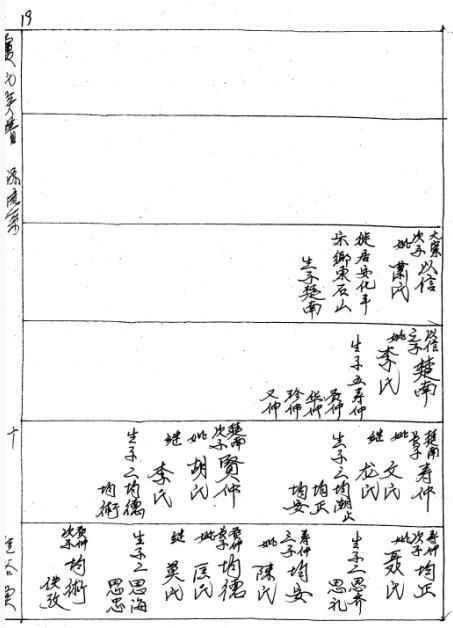 19
大宗
次子 以信
妣 蕭氏
徙居安化丰
乐鄉東石山
生子楚南
以信
之子 楚南
妣 李氏
生子五 寿仲
贤仲
华仲
珍仲
文仲
楚南
長子 寿仲
妣 文氏
继 龙氏
生子三 均潮
均正
均安
楚南
次子 賢仲
妣 胡氏
继 李氏
生子二 均德
均術
寿仲
次子 均正
妣 聂氏
生子二 思齐
思礼
寿仲
三子 均安
妣 陳氏
賢仲
長子 均德
妣 匡氏
继 莫氏
生子二 思海
思思
賢仲
次子 均術
佚考
十